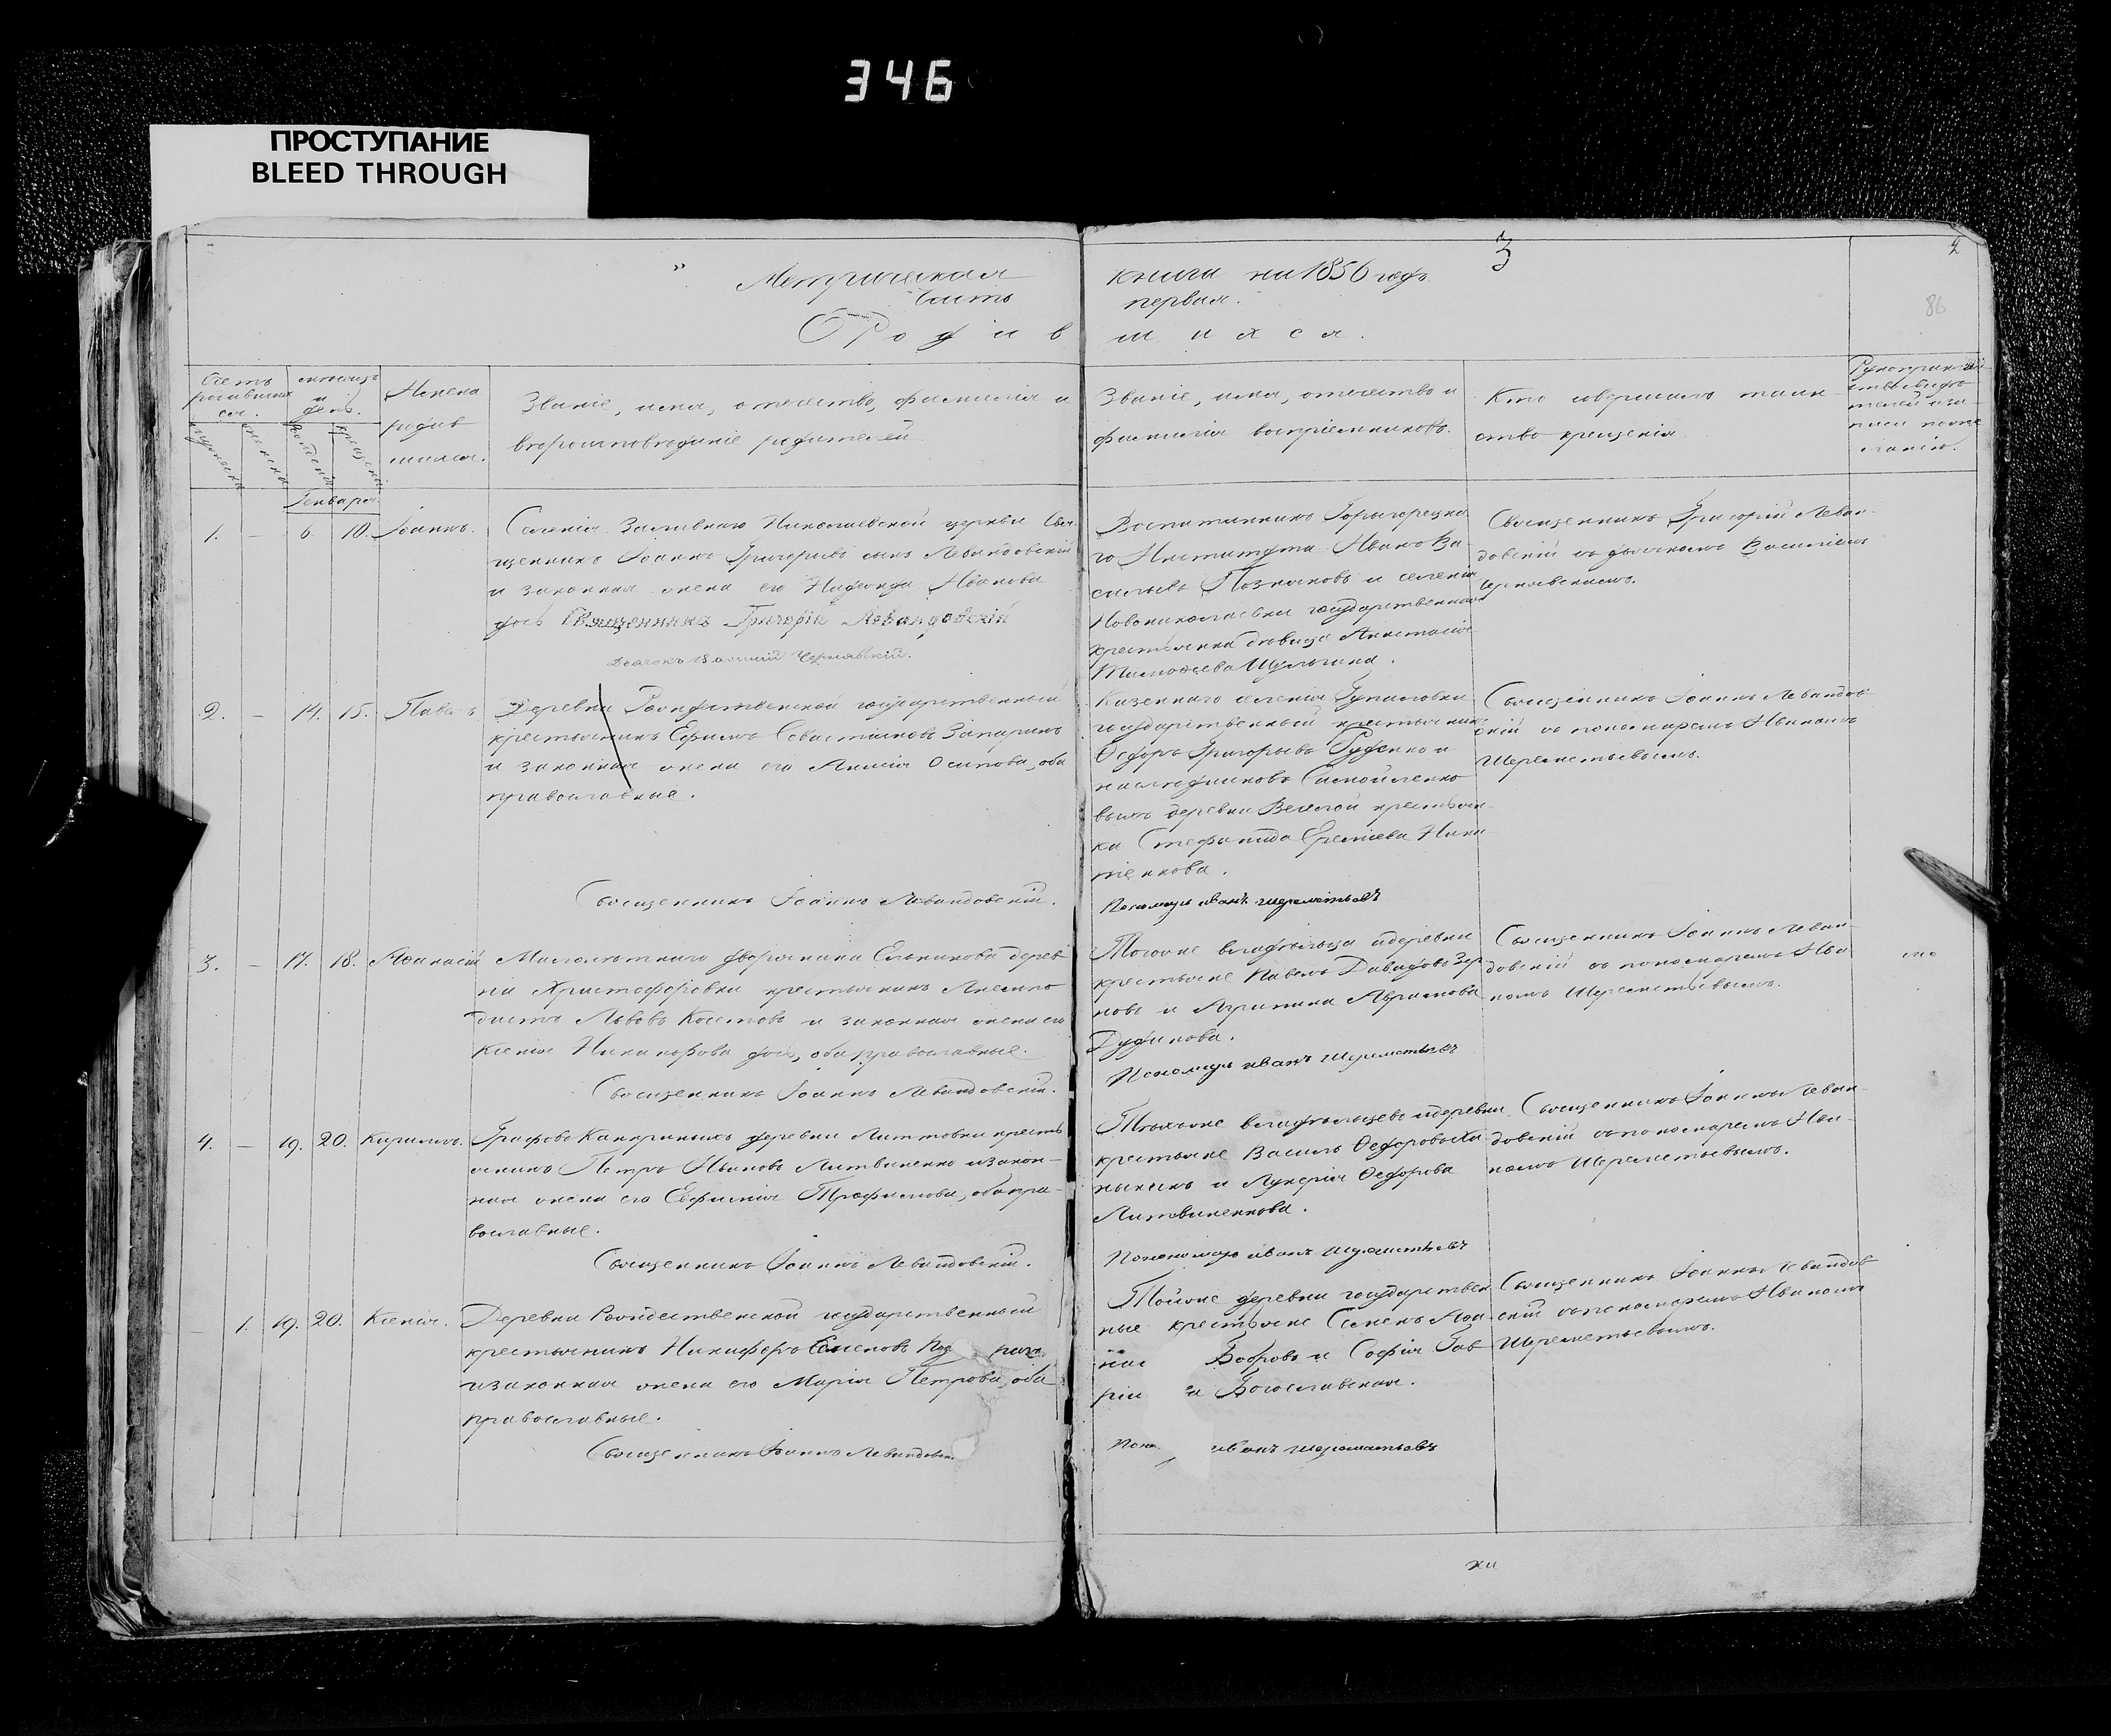 346
ПРОСТУПАНИЕ
BLEED THROUGH
3
2
86
Метрическая книга на 1856 годъ.
Часть первая.
О Родившихся.
Счетъ родившихся.
мѣсяцъ и день.
Имена родившихся.
Званіе, имя, отечество, фамилія и
вѣроисповѣданіе родителей.
Званіе, имя, отечество и
фамилія воспріемниковъ.
Кто совершалъ таин-
ство крещенія.
Генваря
1. – 6. 10. Іоаннъ.
Селенія Заливнаго Николаевской церкви Свя-
щенникъ Іоаннъ Григорьевъ сынъ Левандовскій
и законная жена его Надежда Иванова
Священникъ Григорій Левандовскій
Дьячекъ Василій Чернявскій.
Воспитанникъ Горыгорецка-
го Института Иванъ Ва-
сильевъ Позняковъ и селенія
Новониколаевки государственная
крестьянка дѣвица Анастасія
Тимофеева Шульгина.
Священникъ Григорій Леван-
довскій съ дьячкомъ Василіемъ
Чернявскимъ.
2. – 14. 15. Павелъ
Деревни Рождественской государственный
крестьянинъ Ефимъ Севастіановъ Запаринъ
и законная жена его Анисія Осипова, оба
православные.
Священникъ Іоаннъ Левандовскій.
Казеннаго селенія
государственный крестьянинъ
Ѳедоръ Григорьевъ Руденко и
наслѣдниковъ Самойленко-
выхъ деревни Веселой крестьян-
ка Стефанида Еремѣева Ники-
тенкова.
Пономарь иванъ шереметьевъ
Священникъ Іоаннъ Левандов-
скій съ пономаремъ Иваномъ
Шереметьевымъ.
3. – 17. 18. Аѳанасій
Малолѣтняго дворянина дерев-
ни Христофоровки крестьянинъ
Львовъ Костовъ и законная жена его
Ксенія Никанорова дочь, оба православные.
Священникъ Іоаннъ Левандовскій.
Тогоже владѣльца и деревни
крестьяне Павелъ Давидовъ
новъ и Агрипина Абрамова
Дудикова.
Пономарь иванъ шереметьевъ
Священникъ Іоаннъ Леван-
довскій съ пономаремъ Ива-
номъ Шереметьевымъ.
4. – 19. 20. Кириллъ.
Графовъ Канкриныхъ деревни Литовки кресть-
янинъ Петръ Ивановъ Литвиненко и закон-
ная жена его Евфимія Трофимова, оба пра-
вославные.
Священникъ Іоаннъ Левандовскій.
владѣльцевъ и деревни
крестьяне Василь Ѳедоровъ
и Лукерія Ѳедорова
Литвиненкова.
иванъ шереметьевъ
Священникъ Іоаннъ Леван-
довскій съ пономаремъ Ива-
номъ Шереметьевымъ.
– 1. 19. 20. Ксенія.
Деревни Рождественской государственный
крестьянинъ Никифоръ Семеновъ
и законная жена его Марія Петрова, оба
православные.
Священникъ Іоаннъ Левандовскій
Тойже деревни государствен-
ные крестьяне Семенъ
Бобровъ и Софія Гав-
Богославская.
иванъ шереметьевъ
Священникъ Іоаннъ Левандов-
скій съ пономаремъ Иваномъ
Шереметьевымъ.